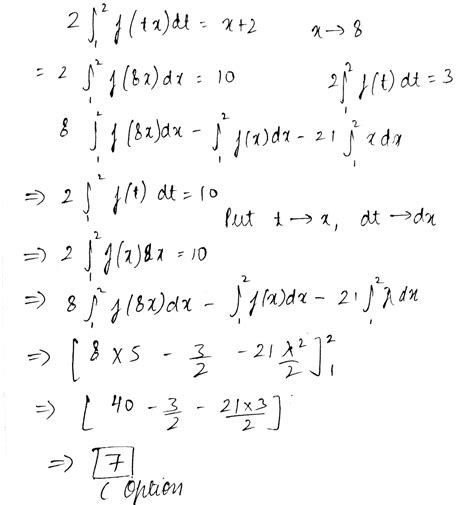 2 ∫₁² f(tx)dt = x+2 x → 8
= 2 ∫₁² f(8x)dx = 10 2∫₁² f(t) dt = 3
8 ∫₁² f(8x)dx - ∫₁² f(x)dx - 21 ∫₁² x dx
⇒ 2 ∫₁² f(t) dt = 10
Put t → x, dt → dx
⇒ 2 ∫₁² f(x)dx = 10
⇒ 8 ∫₁² f(8x)dx - ∫₁² f(x)dx - 21 ∫₁² x dx
⇒ [8 × 5 - 3/2 - 21 x²/2]₁²
⇒ [40 - 3/2 - 21×3/2]
⇒ 7
( Option